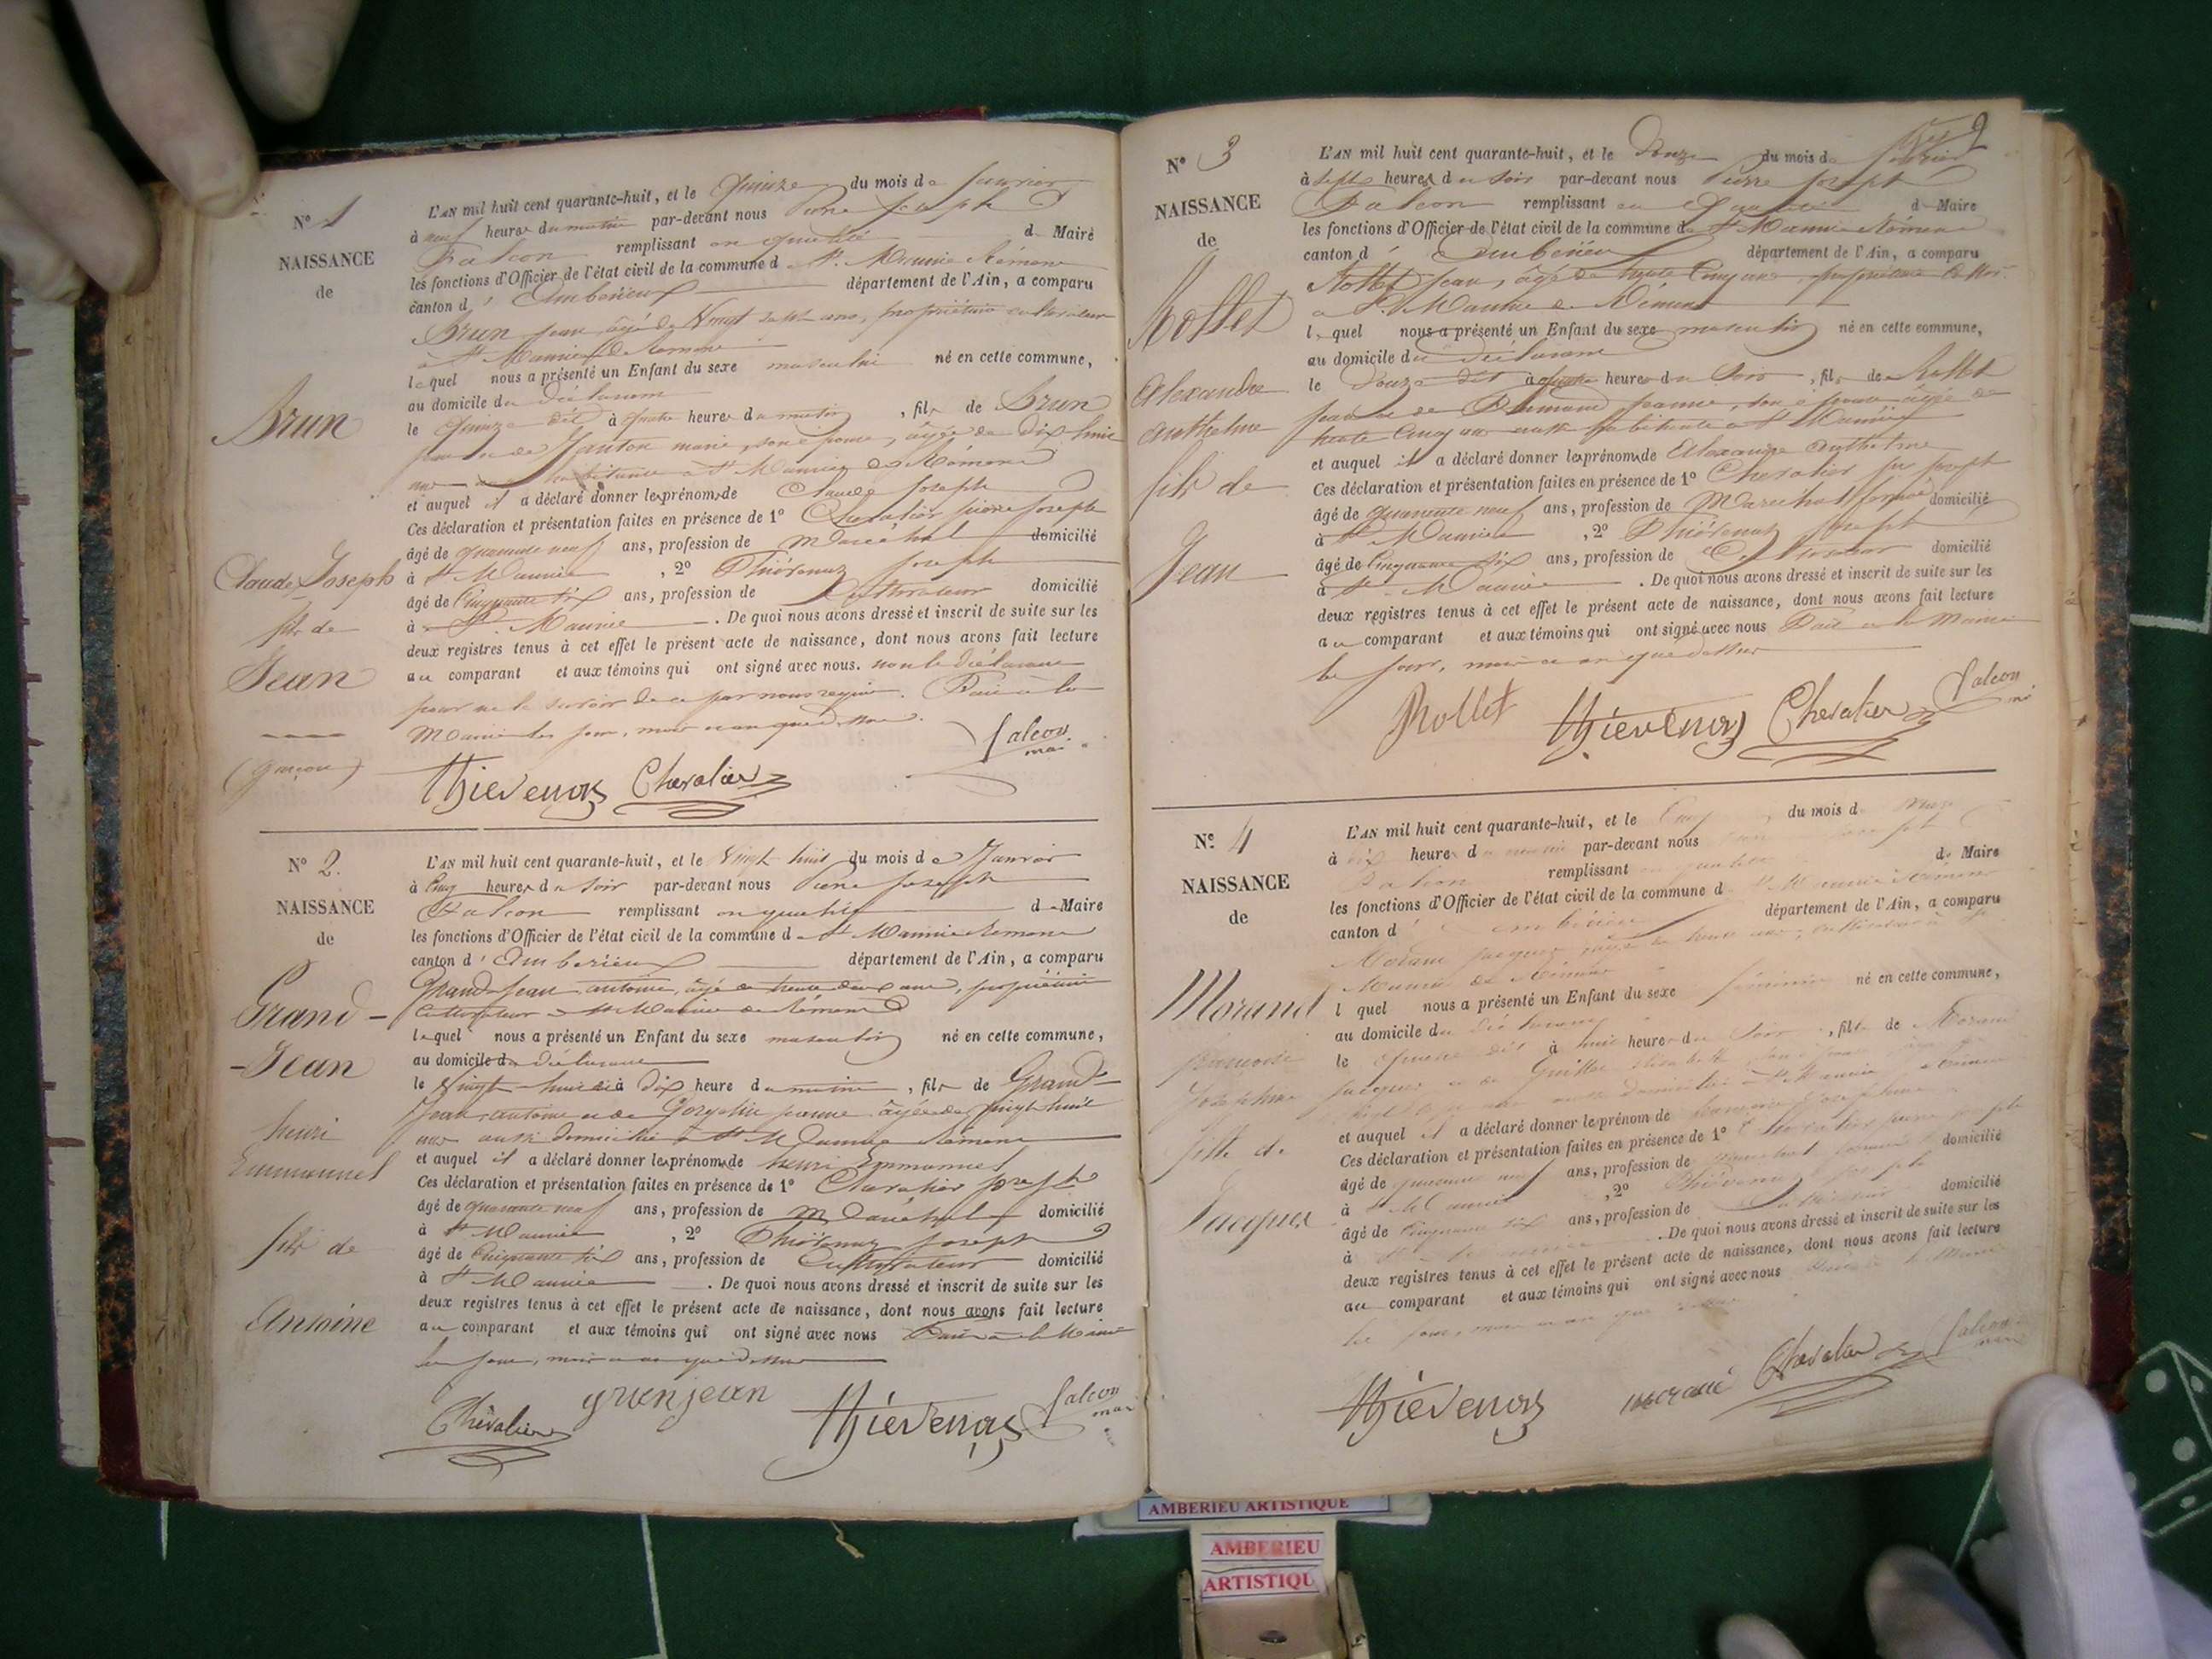 N° 1
NAISSANCE
de
Brun
Claude Joseph
fils de
Jean
(garçon)
L'AN mil huit cent quarante-huit, et le Quinze du mois de Janvier
à neuf heures du matin par-devant nous Pierre Joseph
Falcon remplissant en qualité de Maire
les fonctions d'Officier de l'état civil de la commune de St. Maurice Rémens
canton d'Amberieux département de l'Ain, a comparu
Brun Jean, âgé de Vingt sept ans, propriétaire cultivateur
à St Maurice de Remens
lequel nous a présenté un Enfant du sexe masculin né en cette commune,
au domicile du déclarant
le Quinze dit à quatre heures du matin, fils de Brun
Jean et de Janton marie, son épouse, âgée de dix huit
ans habitante à St Maurice de Rémens
et auquel il a déclaré donner les prénoms de Claude Joseph
Ces déclaration et présentation faites en présence de 1° Chevalier pierre Joseph
âgé de quarante neuf ans, profession de Maréchal domicilié
à St Maurice, 2° Thiévenaz Joseph
âgé de Cinquante six ans, profession de Cultivateur domicilié
à St. Maurice. De quoi nous avons dressé et inscrit de suite sur les
deux registres tenus à cet effet le présent acte de naissance, dont nous avons fait lecture
au comparant et aux témoins qui ont signé avec nous. non le déclarant
pour ne le savoir de ce par nous requis. Fait à la
Mairie les jour, mois et an que dessus.
Thievenaz Chevalier falcon
mai
N° 2.
NAISSANCE
de
Grand-
-Jean
henri
Emmanuel
fils de
Antoine
L'AN mil huit cent quarante-huit, et le Vingt huit du mois de Janvier
à Cinq heures du Soir par-devant nous Pierre Joseph
Falcon remplissant en qualité de Maire
les fonctions d'Officier de l'état civil de la commune de St Maurice Remens
canton d'Amberieux département de l'Ain, a comparu
Grand-Jean antoine, âgé de trente deux ans, propriétaire
Cultivateur à St Maurice de Rémens
lequel nous a présenté un Enfant du sexe masculin né en cette commune,
au domicile du déclarant
le Vingt-huit dit à dix heures du matin, fils de Grand-
Jean, antoine et de jeanne âgée de vingt huit
ans aussi domiciliée à St Maurice Rémens
et auquel il a déclaré donner les prénoms de henri Emmanuel
Ces déclaration et présentation faites en présence de 1° Chevalier Joseph
âgé de quarante neuf ans, profession de Maréchal domicilié
à St Maurice, 2° Thiévenaz Joseph
âgé de Cinquante six ans, profession de Cultivateur domicilié
à St Maurice. De quoi nous avons dressé et inscrit de suite sur les
deux registres tenus à cet effet le présent acte de naissance, dont nous avons fait lecture
au comparant et aux témoins qui ont signé avec nous Fait à la Mairie
les jour, mois et an que dessus
Chevalier granjean Thievenaz falcon
mai
2
N° 3
NAISSANCE
de
Rollet
Alexandre
Anthelme
fils de
Jean
L'AN mil huit cent quarante-huit, et le Douze du mois de février
à Sept heures du Soir par-devant nous Pierre Joseph
Falcon remplissant en Qualité de Maire
les fonctions d'Officier de l'état civil de la commune de St Maurice Rémens
canton d'Amberieux département de l'Ain, a comparu
Rollet Jean, âgé de trente Cinq ans, propriétaire
à St. Maurice de Rémens
lequel nous a présenté un Enfant du sexe masculin né en cette commune,
au domicile du déclarant
le Douze dit à quatre heures du Soir, fils de Rollet
jean et de jeanne, son épouse âgée de
trente Cinq ans aussi habitante à St Maurice
et auquel il a déclaré donner les prénoms de Alexandre Anthelme
Ces déclaration et présentation faites en présence de 1° Chevalier joseph
âgé de quarante neuf ans, profession de Maréchal domicilié
à St Maurice, 2° Thiévenaz Joseph
âgé de Cinquante six ans, profession de Cultivateur domicilié
à St. Maurice. De quoi nous avons dressé et inscrit de suite sur les
deux registres tenus à cet effet le présent acte de naissance, dont nous avons fait lecture
au comparant et aux témoins qui ont signé avec nous Fait à la Mairie
les jour, mois et an que dessus
Rollet Thievenaz Chevalier falcon
N° 4
NAISSANCE
de
Morand
françoise
Joséphine
fille de
Jacques
L'AN mil huit cent quarante-huit, et le Cinq du mois de Mars
à dix heures du matin par-devant nous
Falcon remplissant en qualité de Maire
les fonctions d'Officier de l'état civil de la commune de St Maurice Rémens
canton d'Amberieux département de l'Ain, a comparu
Morand Jacques âgé de trente ans, Cultivateur à St
Maurice de Rémens
lequel nous a présenté un Enfant du sexe féminin né en cette commune,
au domicile du déclarant
le dit à huit heures du Soir, fille de Morand
Jacques et de
et auquel il a déclaré donner les prénom de françoise Joséphine
Ces déclaration et présentation faites en présence de 1° Chevalier pierre joseph
âgé de quarante neuf ans, profession de maréchal domicilié
à St Maurice, 2° Thiévenaz Joseph
âgé de Cinquante six ans, profession de Cultivateur domicilié
à St Maurice. De quoi nous avons dressé et inscrit de suite sur les
deux registres tenus à cet effet le présent acte de naissance, dont nous avons fait lecture
au comparant et aux témoins qui ont signé avec nous
les jour, mois et an que dessus
Thievenaz morand Chevalier falcon
AMBERIEU ARTISTIQUE
AMBERIEU
ARTISTIQU